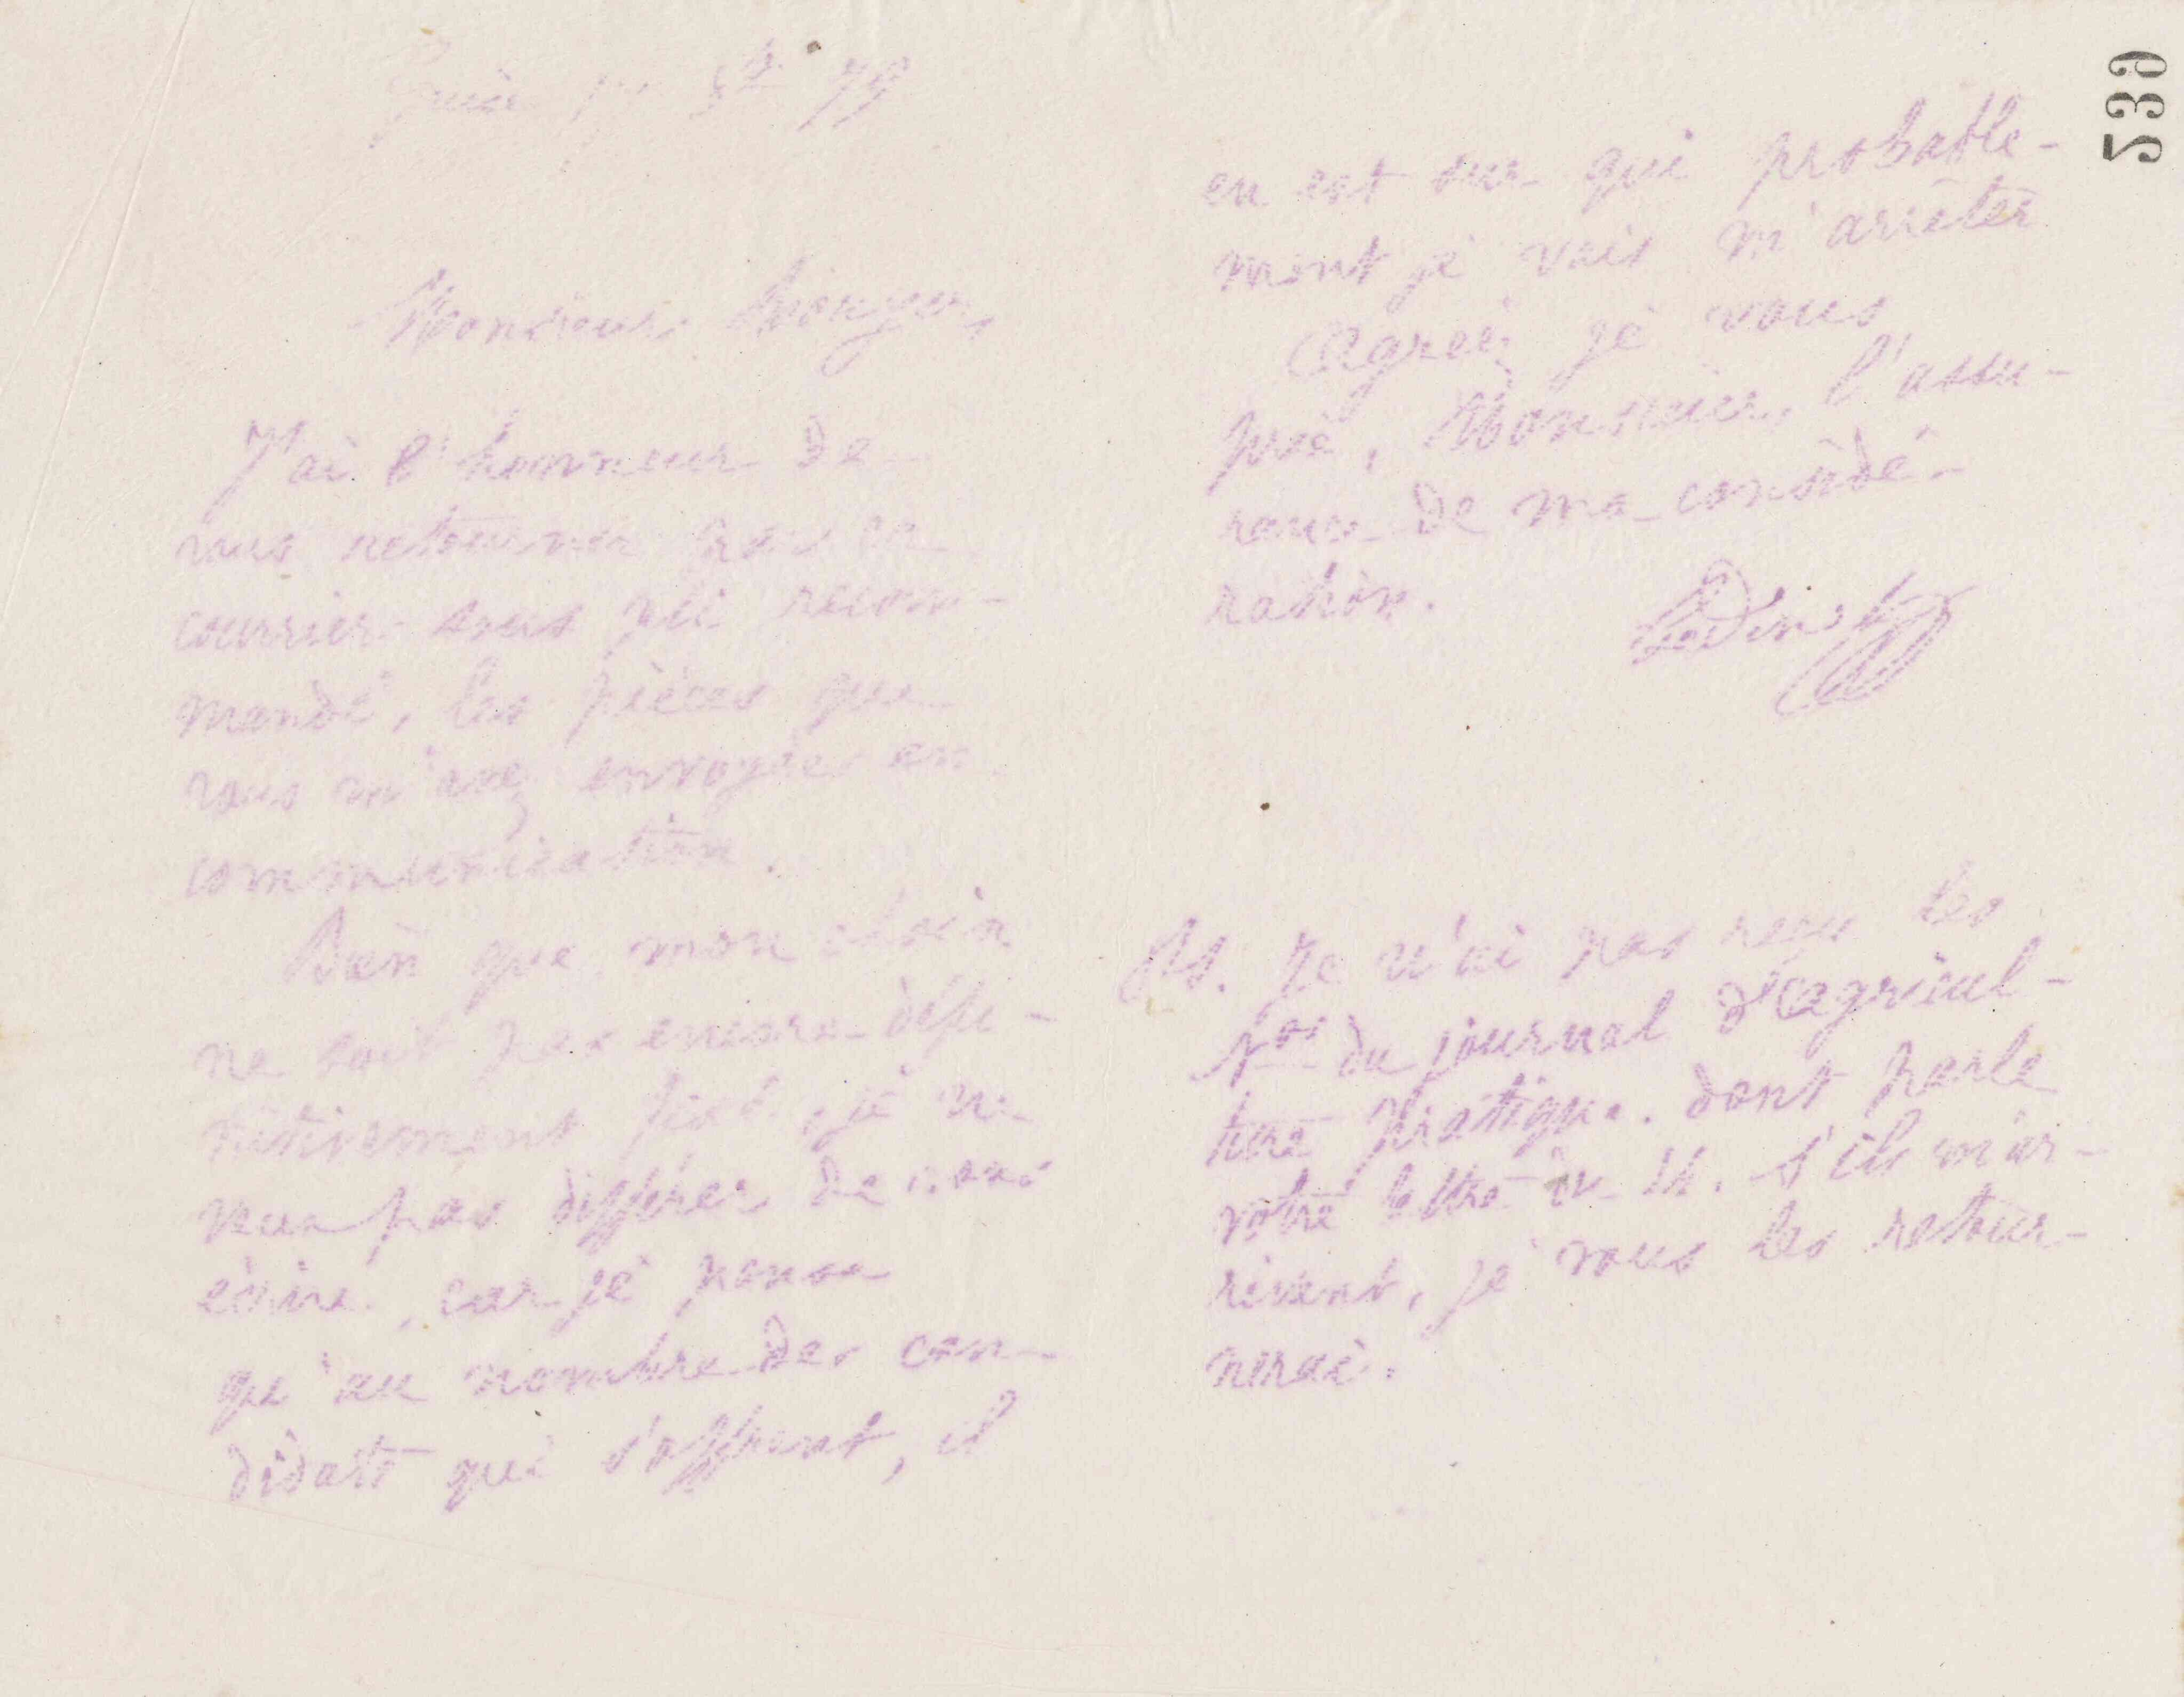 Guise 1er 8bre 79
Monsieur
J'ai l'honneur de
vous retourner par ce
courrier sous pli recom-
mandé, les pièces que
vous m'avez envoyées en
communication.
Bien que mon choix
ne soit pas encore défi-
nitivement fixé, je ne
veux pas différer de vous
écrire, car je pense
qu'au nombre des can-
didats qui s'offrent, il
en est sur qui probable-
ment je vais m'arrêter
Agréez je vous
prie, Monsieur, l'assu-
rance de ma considé-
ration.
Godin
PS. Je n'ai pas reçu les
Nos du journal d'Agricul-
ture pratique. dont parle
votre lettre du 14. s'ils m'ar-
rivent, je vous les retour-
nerai.
539